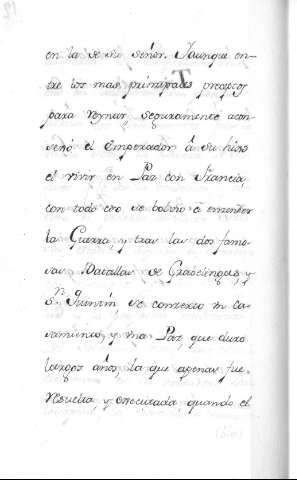 en la de su señor. Yaunque en-
tre los mas principales preceptos
para Reynar, seguramente acon-
sejó el Emperador á su hijo
el vivir en Paz con Francia,
con todo eso se bolvió á encender
la Guerra, y tras las dos famo-
sas Batallas de Gravelingas, y
Sn. Quintin, se contrexo un ca-
samiento, y una Paz, que duro
largos años, la que apenas fue
resuelta, y executada, quando el